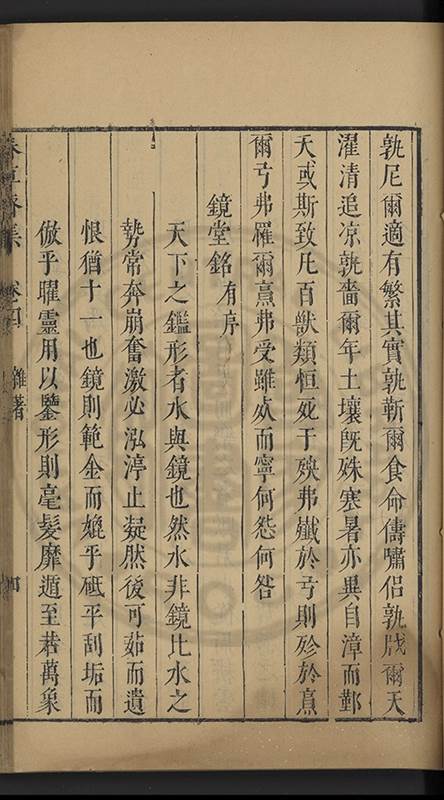 孰尼爾適有繁其實孰靳爾食命儔嘯侶孰戕爾天
濯清追凉孰嗇爾年土壤旣殊塞暑亦異自漳而鄞
天或斯致凡百獸類恒死于殃弗殲於弓則殄於熹
爾弓弗罹爾熹弗受雖㱕而寧何愁何咎
鏡堂銘有序
天下之鑑形者水與鏡也然水非鏡比水之
勢常奔崩奮激必泓渟止凝肰後可茹而遺
恨猶十一也鏡則範金而媲乎砥平刮垢而
倣乎曜靈用以鑒形則毫髮靡遁至若萬象
集 卷四 雜著 四